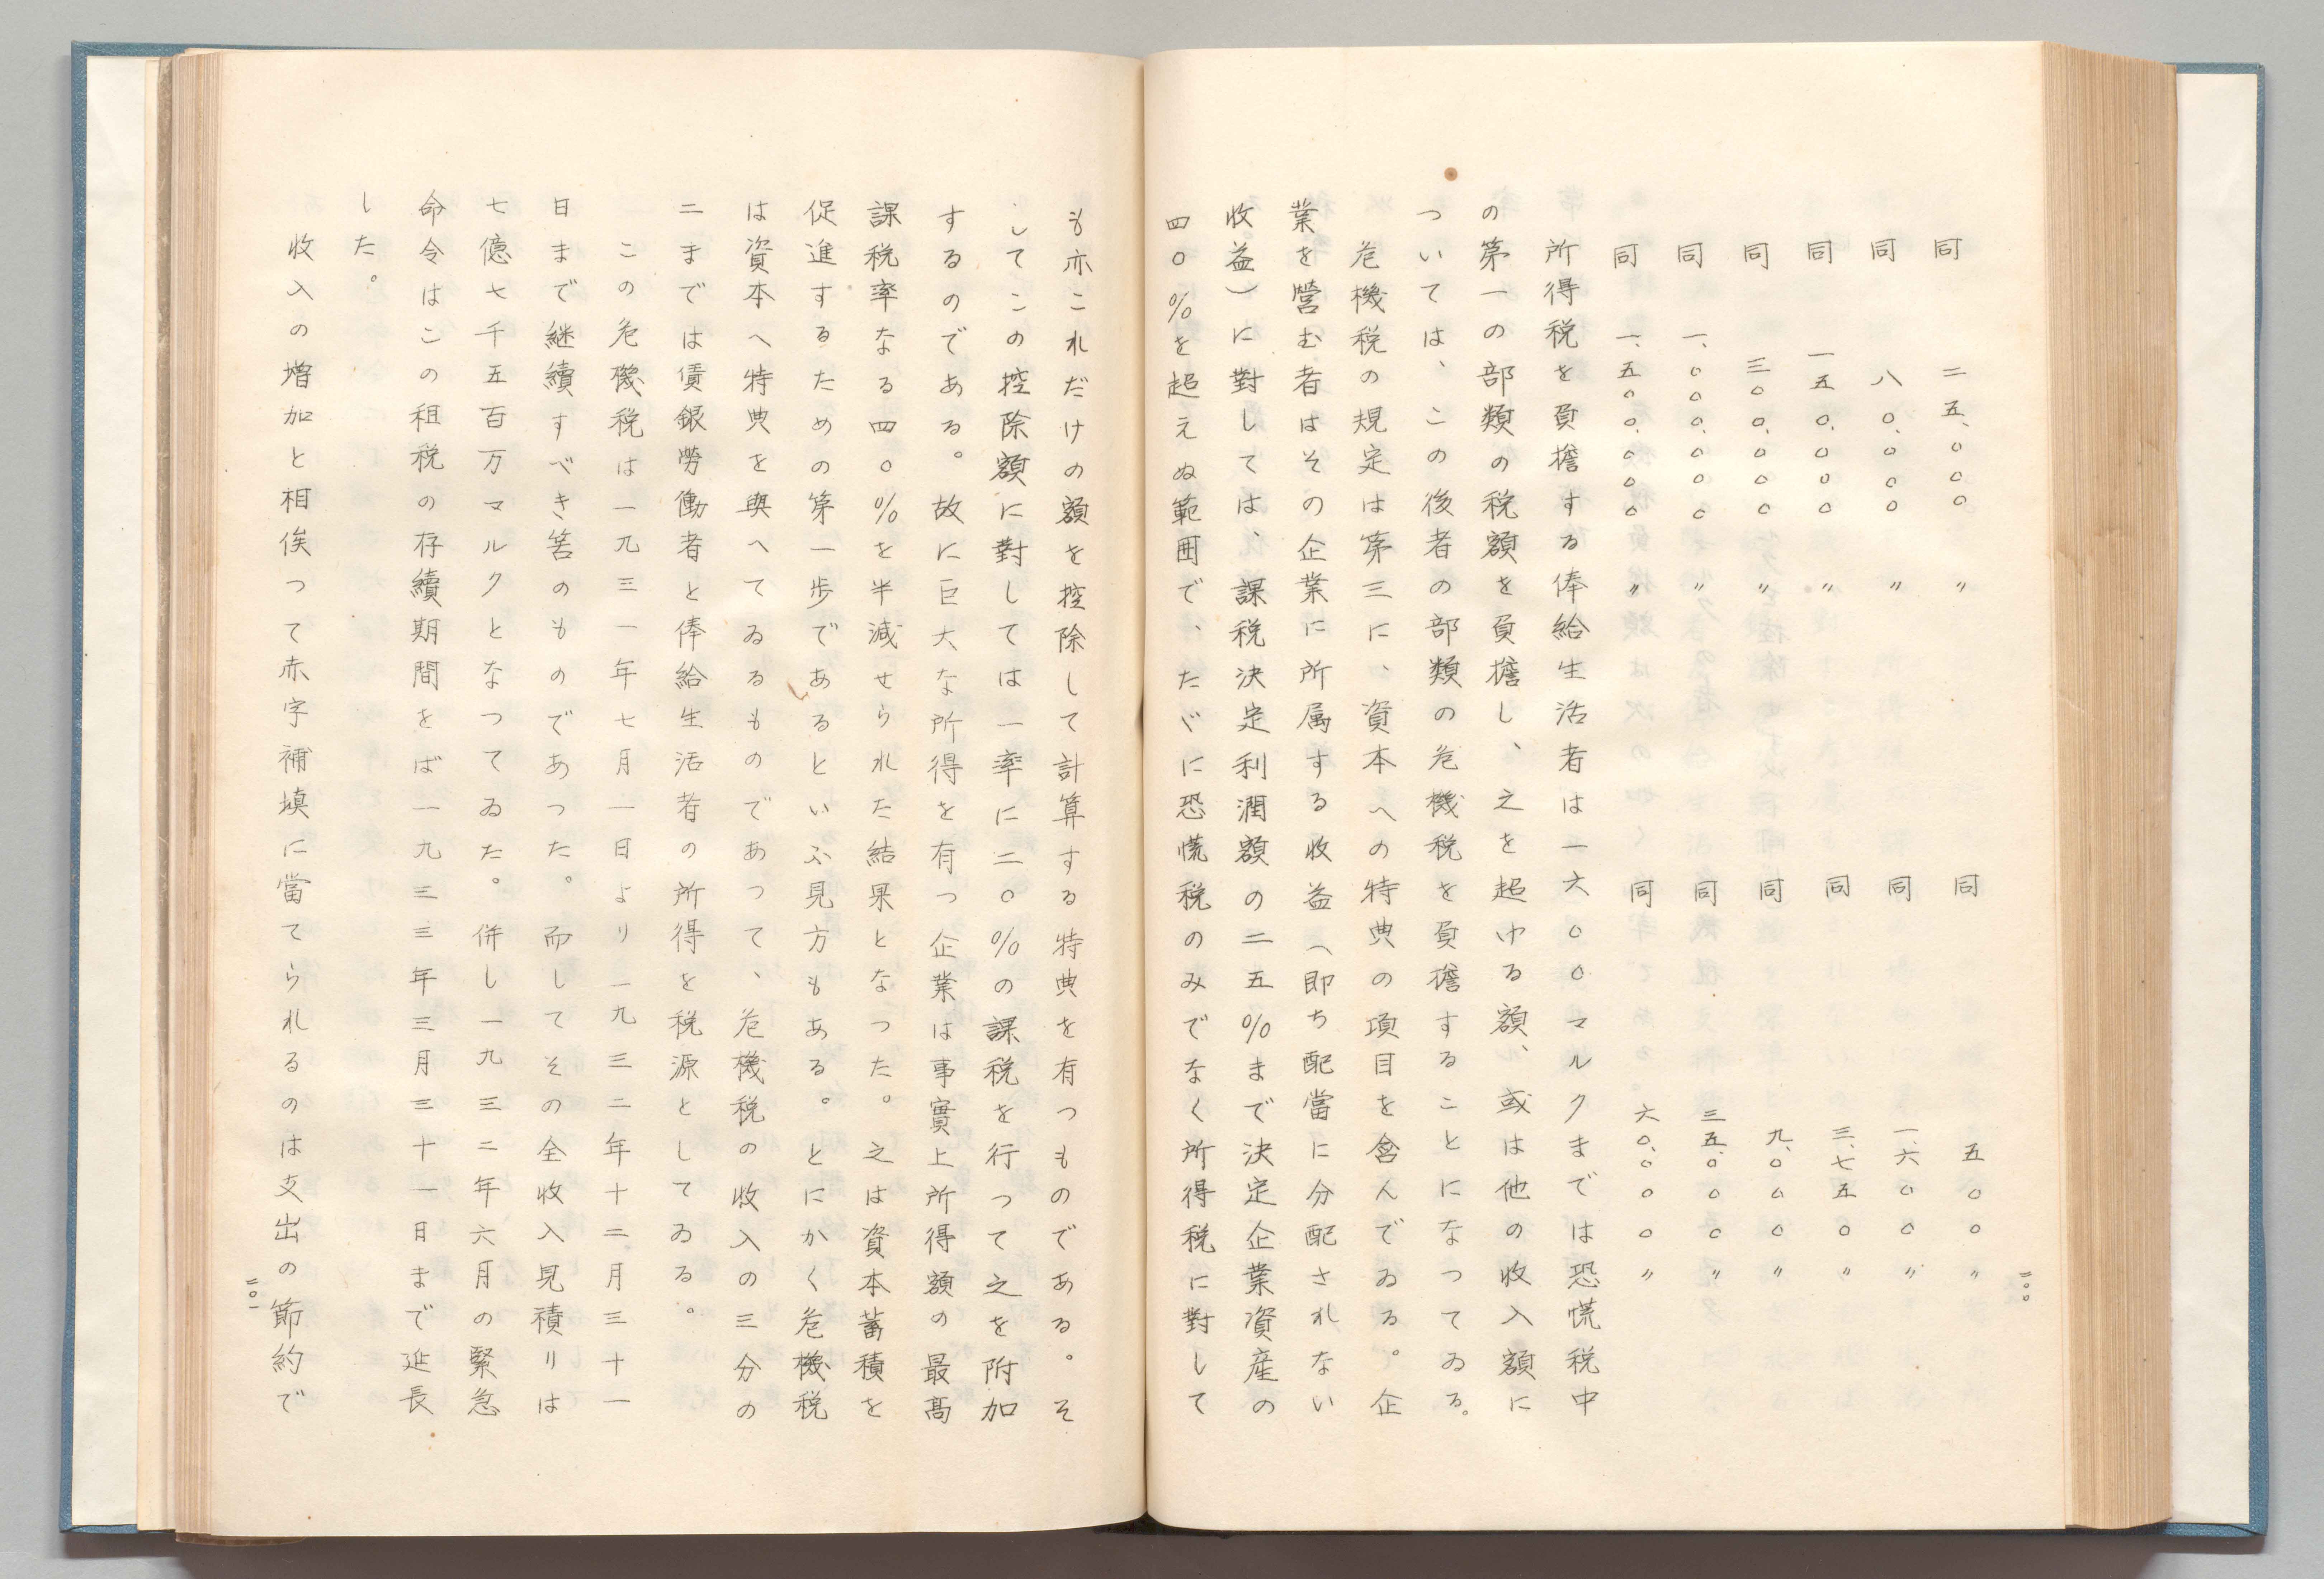 同　二五、〇〇〇〃　同　五〇〇〃
同　八〇、〇〇〇〃　同　一、六〇〇〃
同　一五〇、〇〇〇〃　同　三、七五〇〃
同　三〇〇、〇〇〇〃　同　九、〇〇〇〃
同　一、〇〇〇、〇〇〇〃　同　三五、〇〇〇〃
同　一、五〇〇、〇〇〇〃　同　六〇、〇〇〇〃
所得税を負擔する俸給生活者は一六〇〇マルクまでは恐慌税中
の第一の部類の税額を負擔し、之を超ゆる額、或は他の收入額に
ついては、この後者の部類の危機税を負擔することになつてゐる。
危機税の規定は第三に、資本への特典の項目を含んでゐる。企
業を營む者はその企業に所属する收益（即ち配當に分配されない
收益）に對しては、課税決定利潤額の二五％まで決定企業資産の
四〇％を超えぬ範囲で、たゞに恐慌税のみでなく所得税に對して
二〇〇
も亦これだけの額を控除して計算する特典を有つものである。そ
してこの控除額に對しては一率に二〇％の課税を行つて之を附加
するのである。故に巨大な所得を有つ企業は事實上所得額の最高
課税率なる四〇％を半減せられた結果となつた。之は資本蓄積を
促進するための第一歩であるといふ見方もある。とにかく危機税
は資本へ特典を與へてゐるものであつて、危機税の收入の三分の
二までは賃銀勞働者と俸給生活者の所得を税源としてゐる。
この危機税は一九三一年七月一日より一九三二年十二月三十一
日まで継續すべき筈のものであつた。而してその全收入見積りは
七億七千五百万マルクとなつてゐた。併し一九三二年六月の緊急
命令はこの租税の存續期間をば一九三三年三月三十一日まで延長
した。
收入の増加と相俟つて赤字補塡に當てられるのは支出の節約で
二〇一